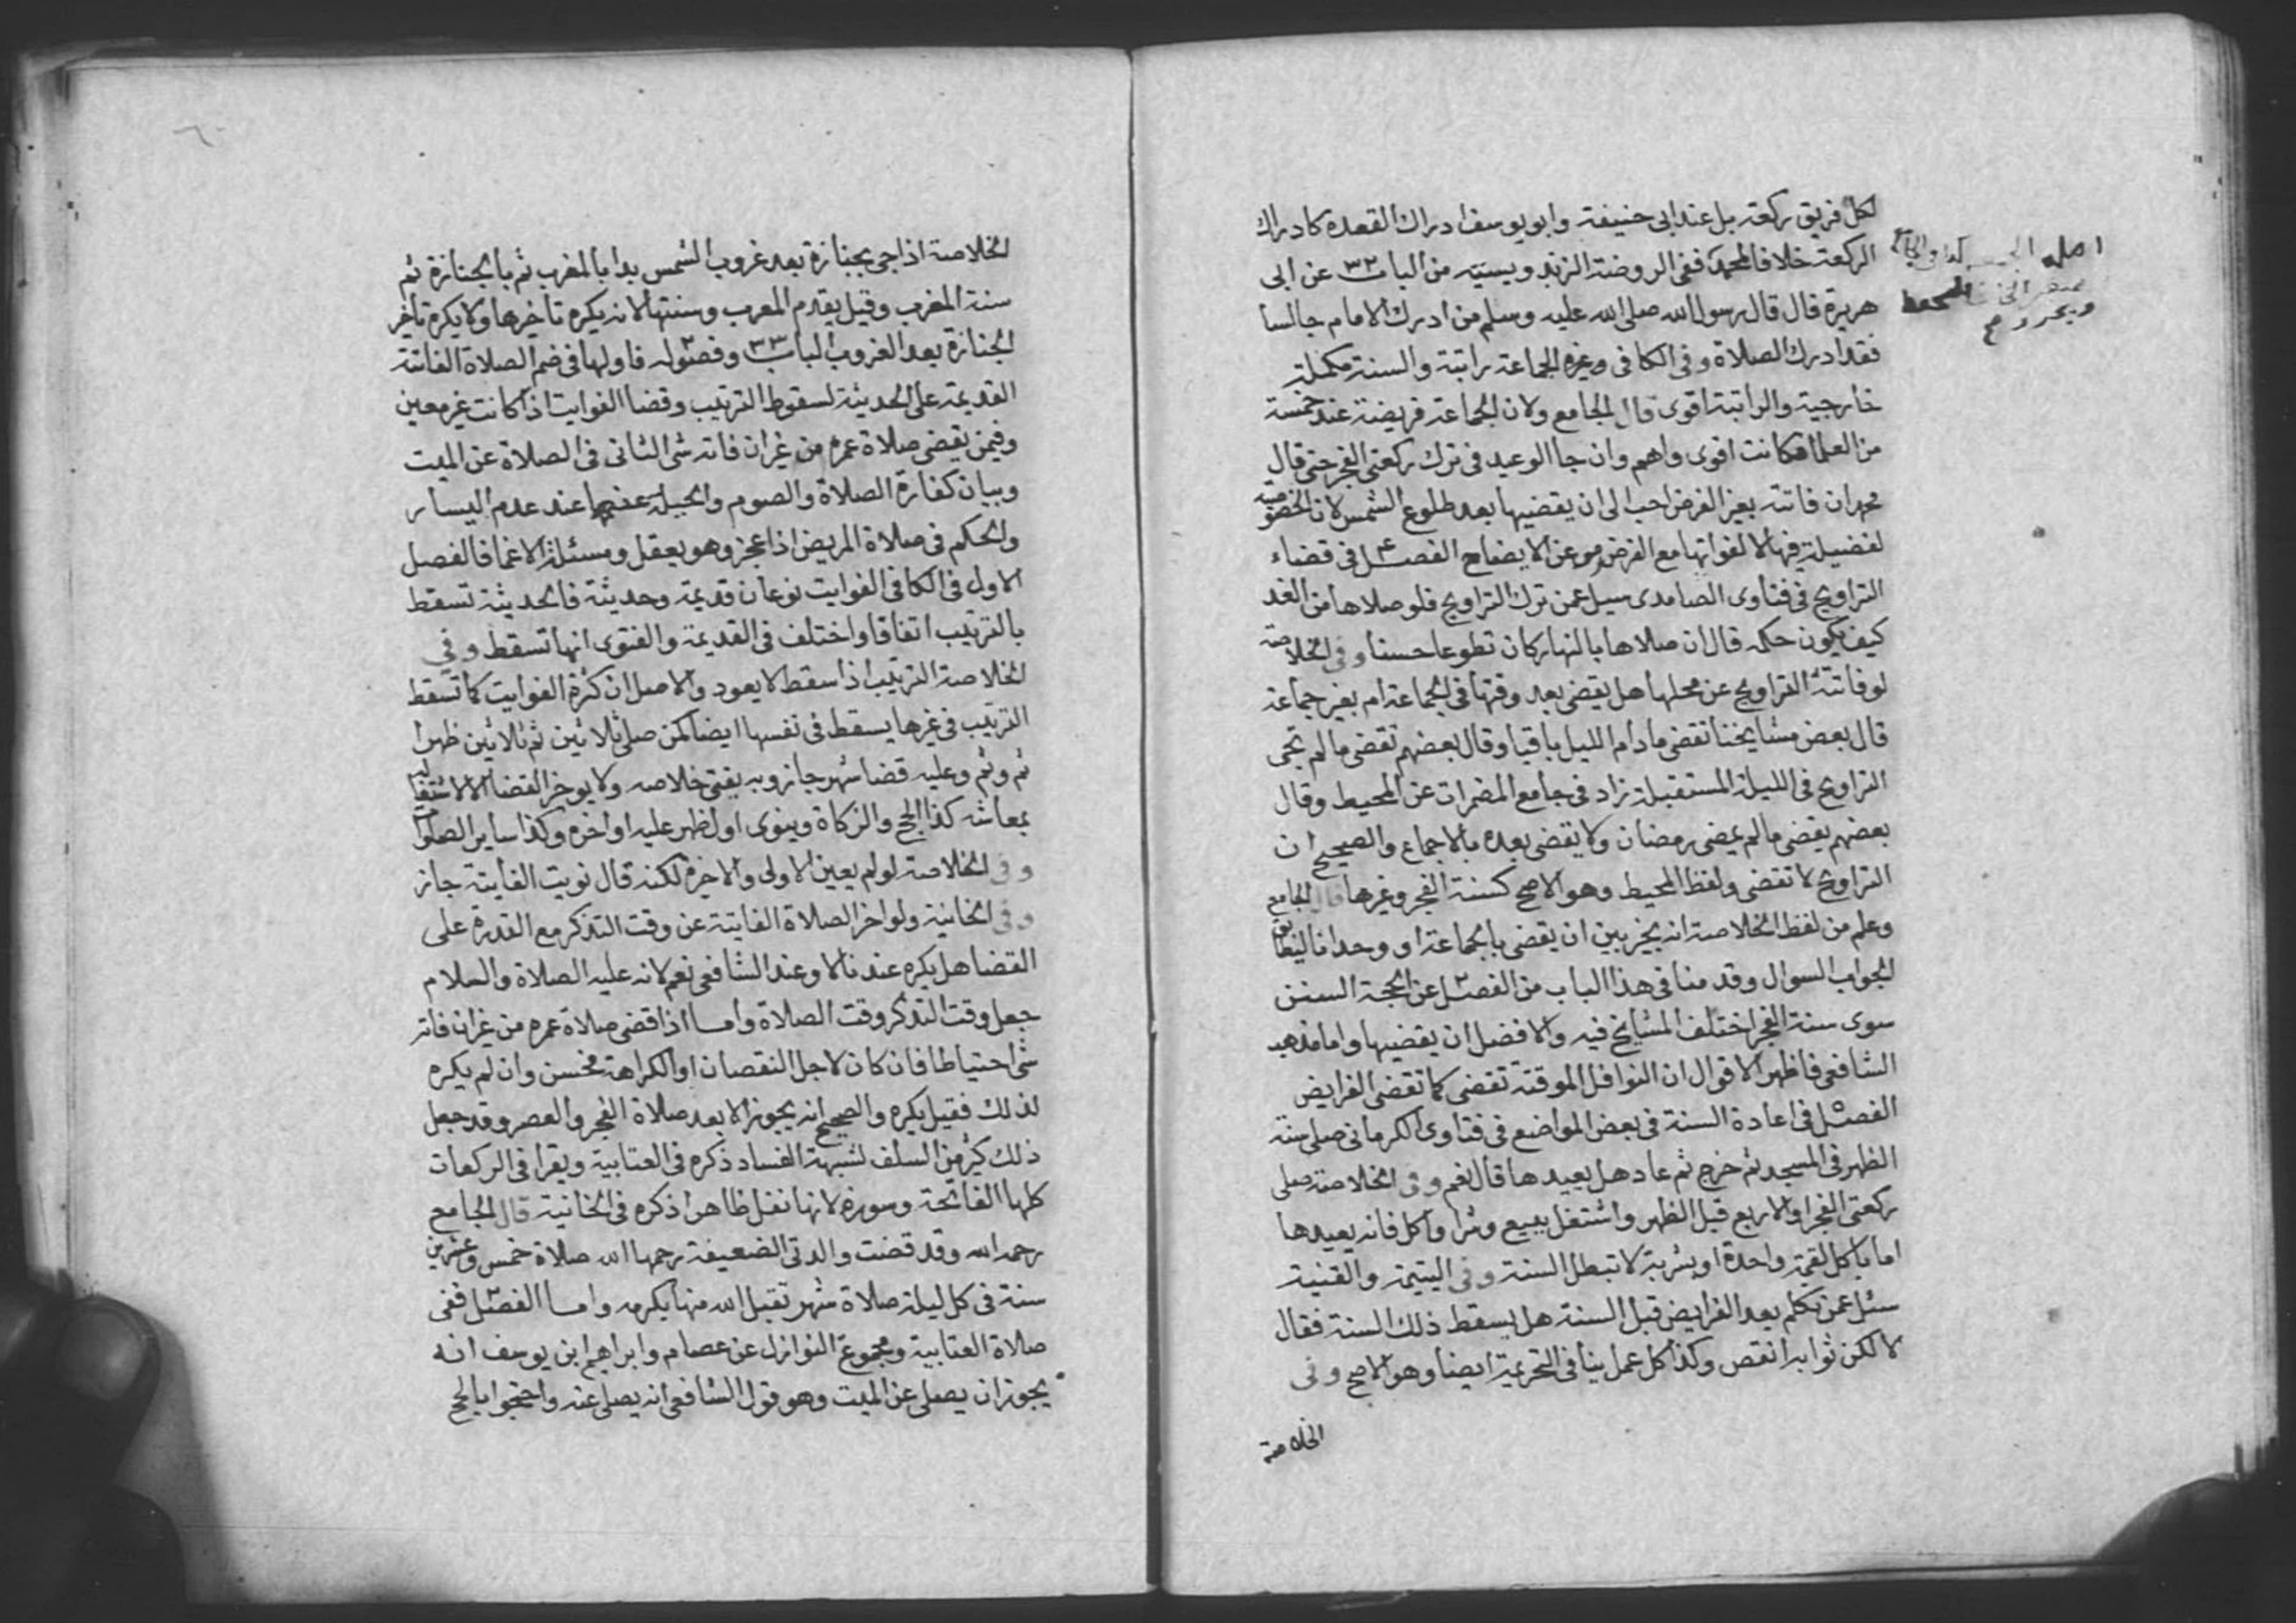 لكل فريق ركعة بل عند ابى حنيفة وابو يوسف ادراك القعدة كادراك
الركعة خلافا لمحمد ففى الروضة الزندويسيته من الباب ٣٢ عن ابى
هريرة قال قال رسول الله صلى الله عليه وسلم من ادرك الامام جالسا
فقد ادرك الصلاة وفى الكافى وغيره الجماعة راتبة والسنة مكملة
خارجية والراتبة اقوى قال الجامع ولان الجماعة فريضة عند خمسة
من العلما فكانت اقوى واهم وان جا الوعيد فى ترك ركعتى الفجر حتى قال
محمد ان فاتته بغير الفرض احب الى ان يقضيها بعد طلوع الشمس لان الخصوصية
لفضيلة فيها لا لفواتها مع الفرض عن الايضاح الفصل ٤ فى قضاء
التراويح فى فتاوى الصامدى سيل عمن ترك التراويح فلو صلاها من الغد
كيف يكون حكمه قال ان صلاها بالنهار كان تطوعا حسنا وفى الخلاصة
لو فاتته التراويح عن محلها هل يقضى بعد وقتها فى الجماعة ام بغير جماعة
قال بعض مشايخنا تقضى ما دام الليل باقيا وقال بعضهم تقضى ما لم تجى
التراويح فى الليلة المستقبلة زاد فى جامع المضمرات عن المحيط وقال
بعضهم يقضى ما لم يمضى رمضان ولا يقضى بعده بالاجماع والصحيح ان
التراويح لا تقضى ولفظ المحيط وهو الاصح كسنة الفجر وغيرها قال الجامع
وعلم من لفظ الخلاصة انه يخير بين ان يقضى بالجماعة او وحدانا ليطابق
الجواب السوال وقدمنا فى هذا الباب من الفصل عن الحجة السنن
سوى سنة الفجر اختلف المشايخ فيه والافضل ان يقضيها واما مذهب
الشافعى فاظهر الاقوال ان النوافل الموقتة تقضى كما تقضى الفرايض
الفصل فى اعادة السنة فى بعض المواضع فى فتاوى الكرمانى صلى سنة
الظهر فى المسجد ثم خرج ثم عاد هل يعيدها قال نعم وفى الخلاصة صلى
ركعتى الفجر او الاربع قبل الظهر واشتغل ببيع وشرا واكل فانه يعيدها
اما باكل لقمة واحدة او بشربة لا تبطل السنة وفى اليتيمة والقنية
سئل عمن تكلم بعد الفرايض قبل السنة هل يسقط ذلك السنة فقال
لا لكن ثوابه انقص وكذا كل عمل ينافى التحريمة ايضا وهو الاصح وفى
الخلاصة
الخلاصة اذا جى بجنازة بعد غروب الشمس بدا بالمغرب ثم بالجنازة ثم
سنة المغرب وقيل يقدم المغرب وسنتها لانه يكره تاخيرها ولا يكره تاخير
الجنازة بعد الغروب الباب ٣٣ وفصوله فاولها فى ضم الصلاة الفائتة
القديمة على الحديثة لسقوط الترتيب وقضا الفوايت اذا كانت غير معين
وفيمن يقضى صلاة عمره من غير ان فاته شى الثانى فى الصلاة عن الميت
وبيان كفارة الصلاة والصوم والحيلة عنهما عند عدم اليسار
والحكم فى صلاة المريض اذا عجز وهو يعقل ومسئلة الاغما فالفصل
الاول فى الكافى الفوايت نوعان قديمة وحديثة فالحديثة تسقط
بالترتيب اتفاقا واختلف فى القديمة والفتوى انها تسقط وفى
الخلاصة الترتيب اذا سقط لا يعود والاصل ان كثرة الفوايت كما تسقط
الترتيب فى غيرها يسقط فى نفسها ايضا كمن صلى ثلاثين ثم ثلاثين ظهرا
ثم وثم وعليه قضا شهر جاز وبه يفتى خلاصه ولا يوخر القضا الا لاشتغاله
بمعاشه كذا الحج والزكاة وينوى اول ظهر عليه او اخره وكذا ساير الصلوات
وفى الخلاصة لو لم يعين الاولى والاخرة لكنه قال نويت الفايتة جاز
وفى الخانية ولو اخر الصلاة الفايتة عن وقت التذكر مع القدرة على
القضا هل يكره عندنا لا وعند الشافعى نعم لانه عليه الصلاة والسلام
جعل وقت التذكر وقت الصلاة واما اذا قضى صلاة عمره من غير ان فاته
شى احتياطا فان كان لاجل النقصان او الكراهة فحسن وان لم يكره
لذلك فقيل يكره والصحيح انه يجوز الا بعد صلاة الفجر والعصر وقد جعل
ذلك كثير من السلف لشبهة الفساد ذكره فى العتابية ويقرا فى الركعات
كلها الفاتحة وسورة لانها نفل ظاهرا ذكره فى الخانية قال الجامع
رحمه الله وقد قضت والدتى الضعيفة رحمها الله صلاة خمس وعشرين
سنة فى كل ليلة صلاة شهر تقبل الله منها بكرمه واما الفصل ففى
صلاة العتابية ومجموع النوازل عن عصام وابراهيم ابن يوسف انه
يجوز ان يصلى عن الميت وهو قول الشافعى انه يصلى عنه واحتجوا بالحج